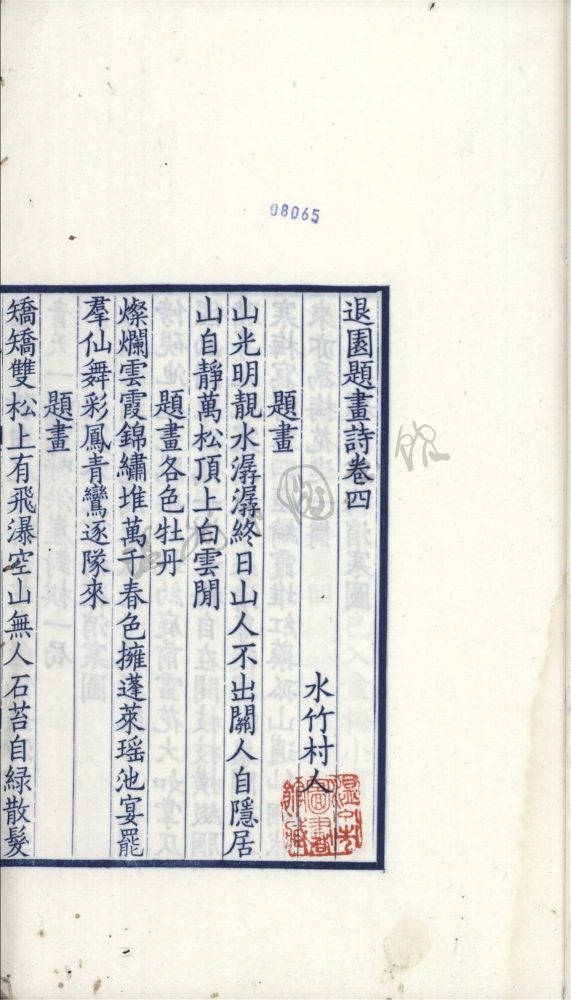 08065
退園題畫詩卷四
水竹村人
題畫
山光明靚水潺潺終日山人不出關人自隱居
山自靜萬松頂上白雲閒
題畫各色牡丹
燦爛雲霞錦繡堆萬千春色擁蓬萊瑶池宴罷
羣仙舞彩鳳青鸞逐隊來
題畫
矯矯雙松上有飛瀑空山無人石苔自綠散髮